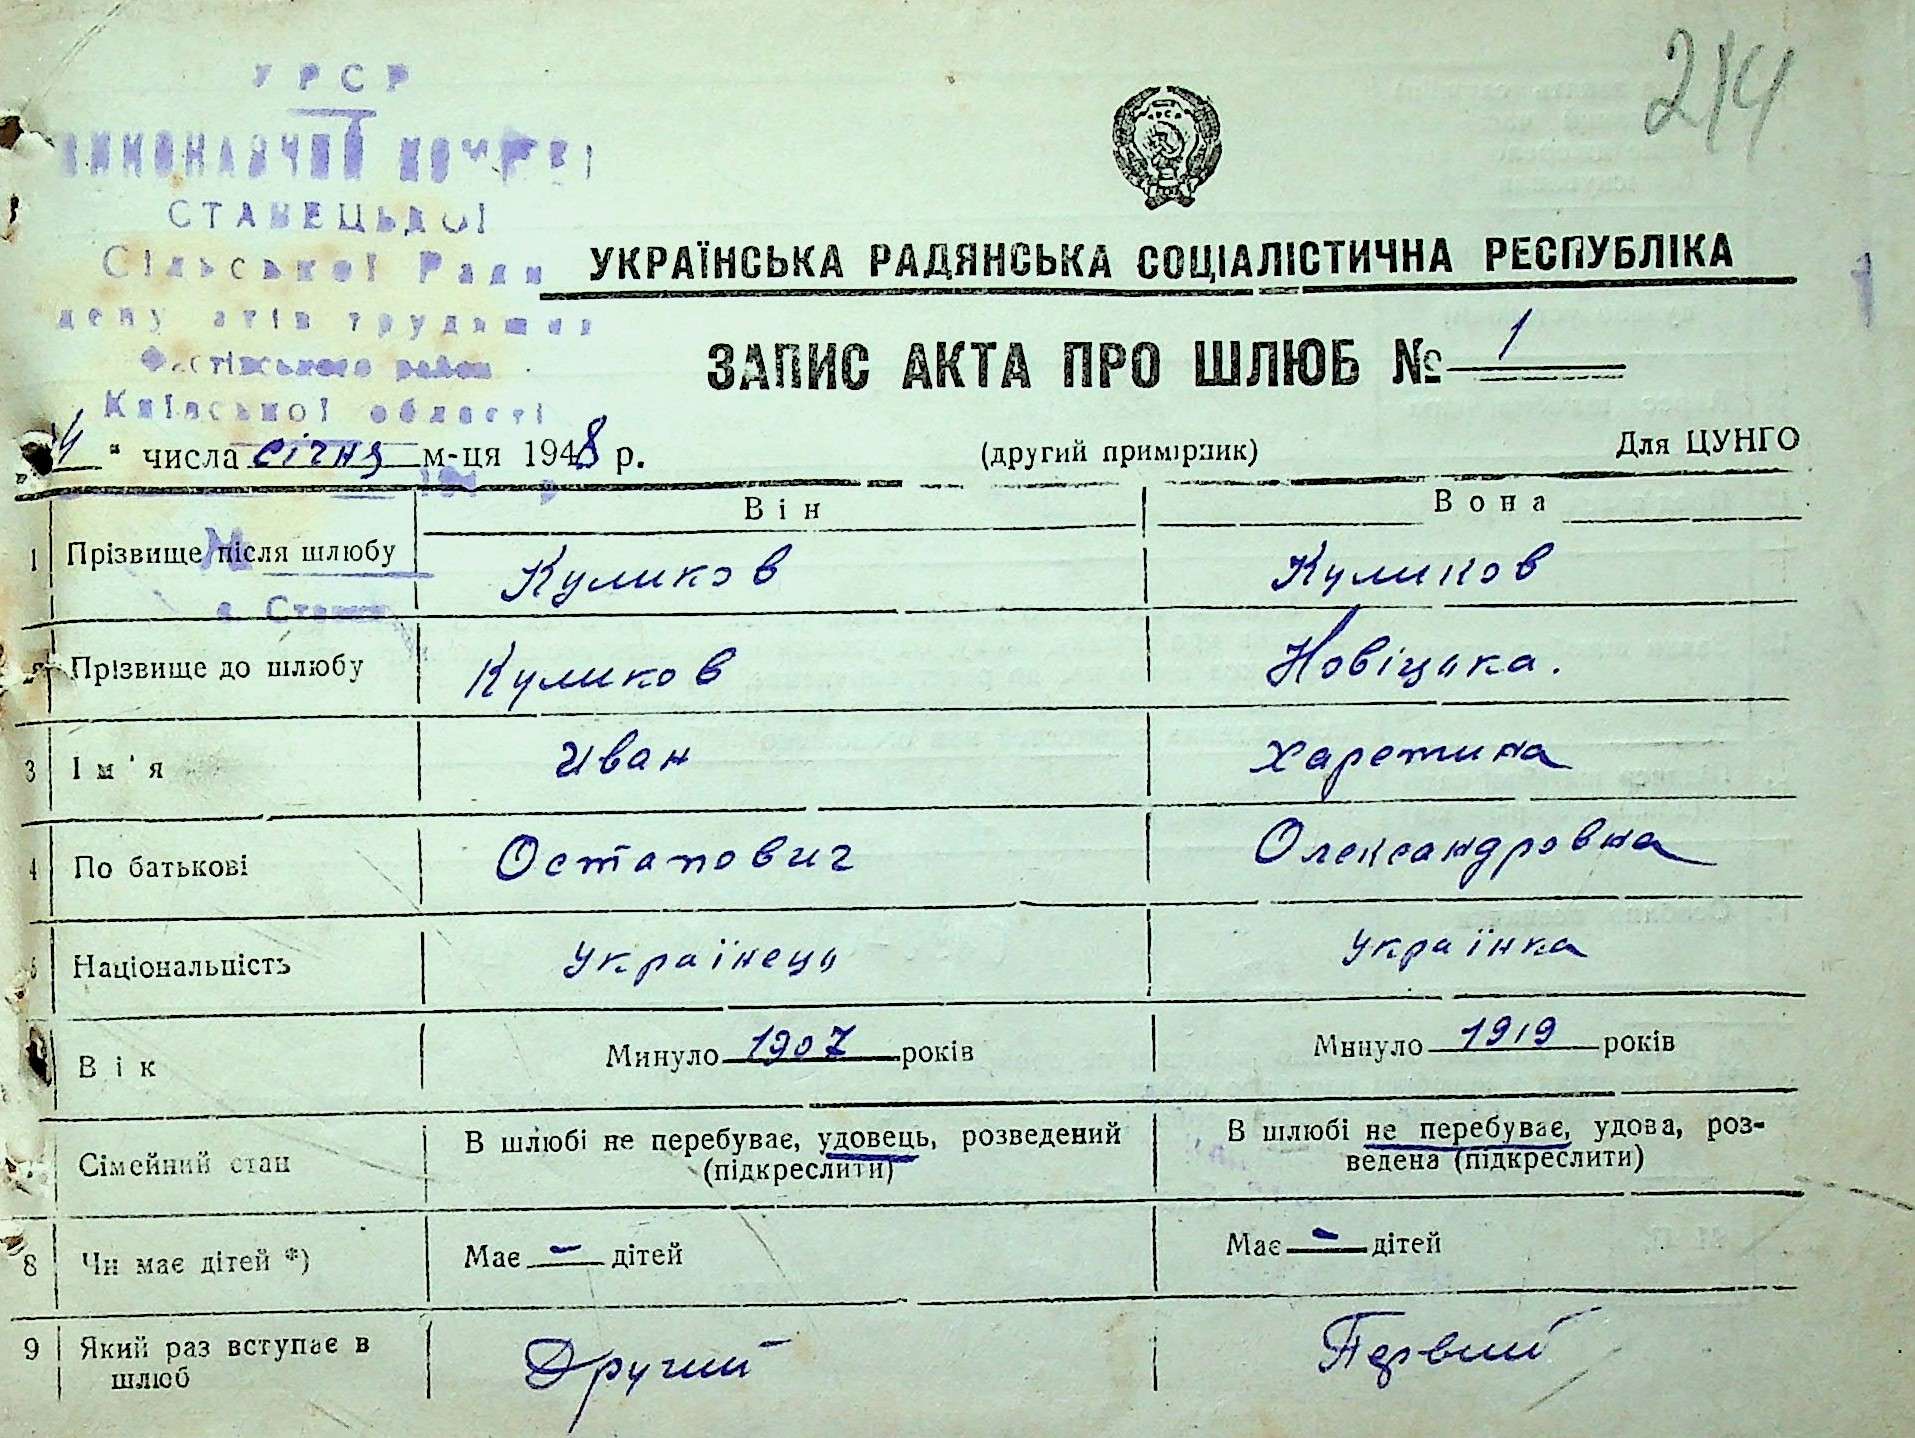 214
УРСР
СТАВЕЦЬКОЇ
Сільської Ради
депутатів трудящих
Фастівського району
Київської області
УКРАЇНСЬКА РАДЯНСЬКА СОЦІАЛІСТИЧНА РЕСПУБЛІКА
ЗАПИС АКТА ПРО ШЛЮБ № 1
„4“ числа січня м-ця 1948 р. (другий примірник) Для ЦУНГО
Він Вона
1 Прізвище після шлюбу Куликов Куликов
2 Прізвище до шлюбу Куликов Новіцька.
3 Ім'я Иван Харетина
4 По батькові Остапович Олександровна
5 Національність Українець Українка
Вік Минуло 1907 років Минуло 1919 років
7 Сімейний стан В шлюбі не перебуває, удовець, розведений (підкреслити) В шлюбі не перебуває, удова, роз-
ведена (підкреслити)
8 Чи має дітей *) Має - дітей Має - дітей
9 Який раз вступає в шлюб Другий Первий